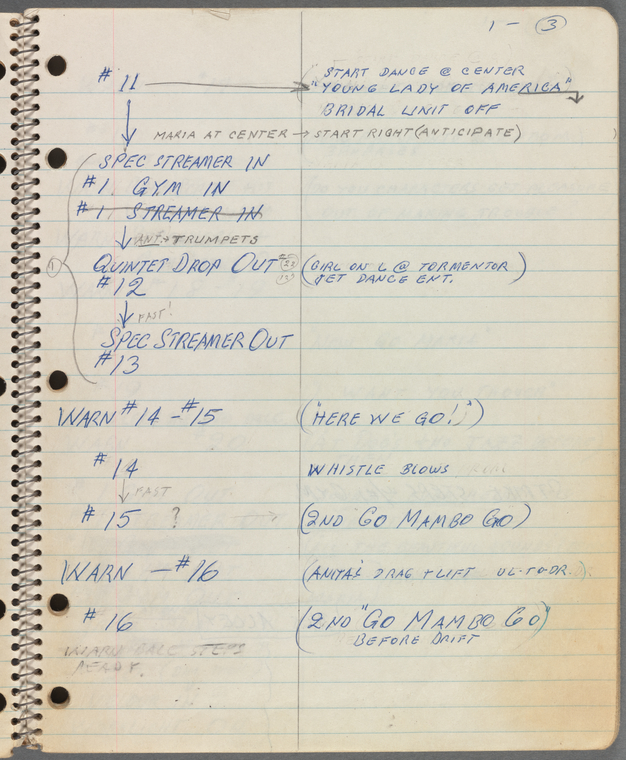 1 - 3
# 11
START DANCE @ CENTER
"YOUNG LADY OF AMERICA"
BRIDAL UNIT OFF
MARIA AT CENTER → START RIGHT (ANTICIPATE)
SPEC STREAMER IN
#1. GYM IN
#1 STREAMER IN
ANT → TRUMPETS
1 QUINTET DROP OUT (GIRL ON L @ TORMENTOR
#12 JET DANCE ENT.)
FAST!
SPEC STREAMER OUT
#13
WARN #14 - #15 ("HERE WE GO!")
#14 WHISTLE BLOWS
FAST
#15 ? (2ND GO MAMBO GO)
WARN - #16 (ANITA'S DRAG + LIFT UL-TO-DR.)
#16 (2ND "GO MAMBO GO")
BEFORE DRIFT
WARN BALC STEPS
READY.